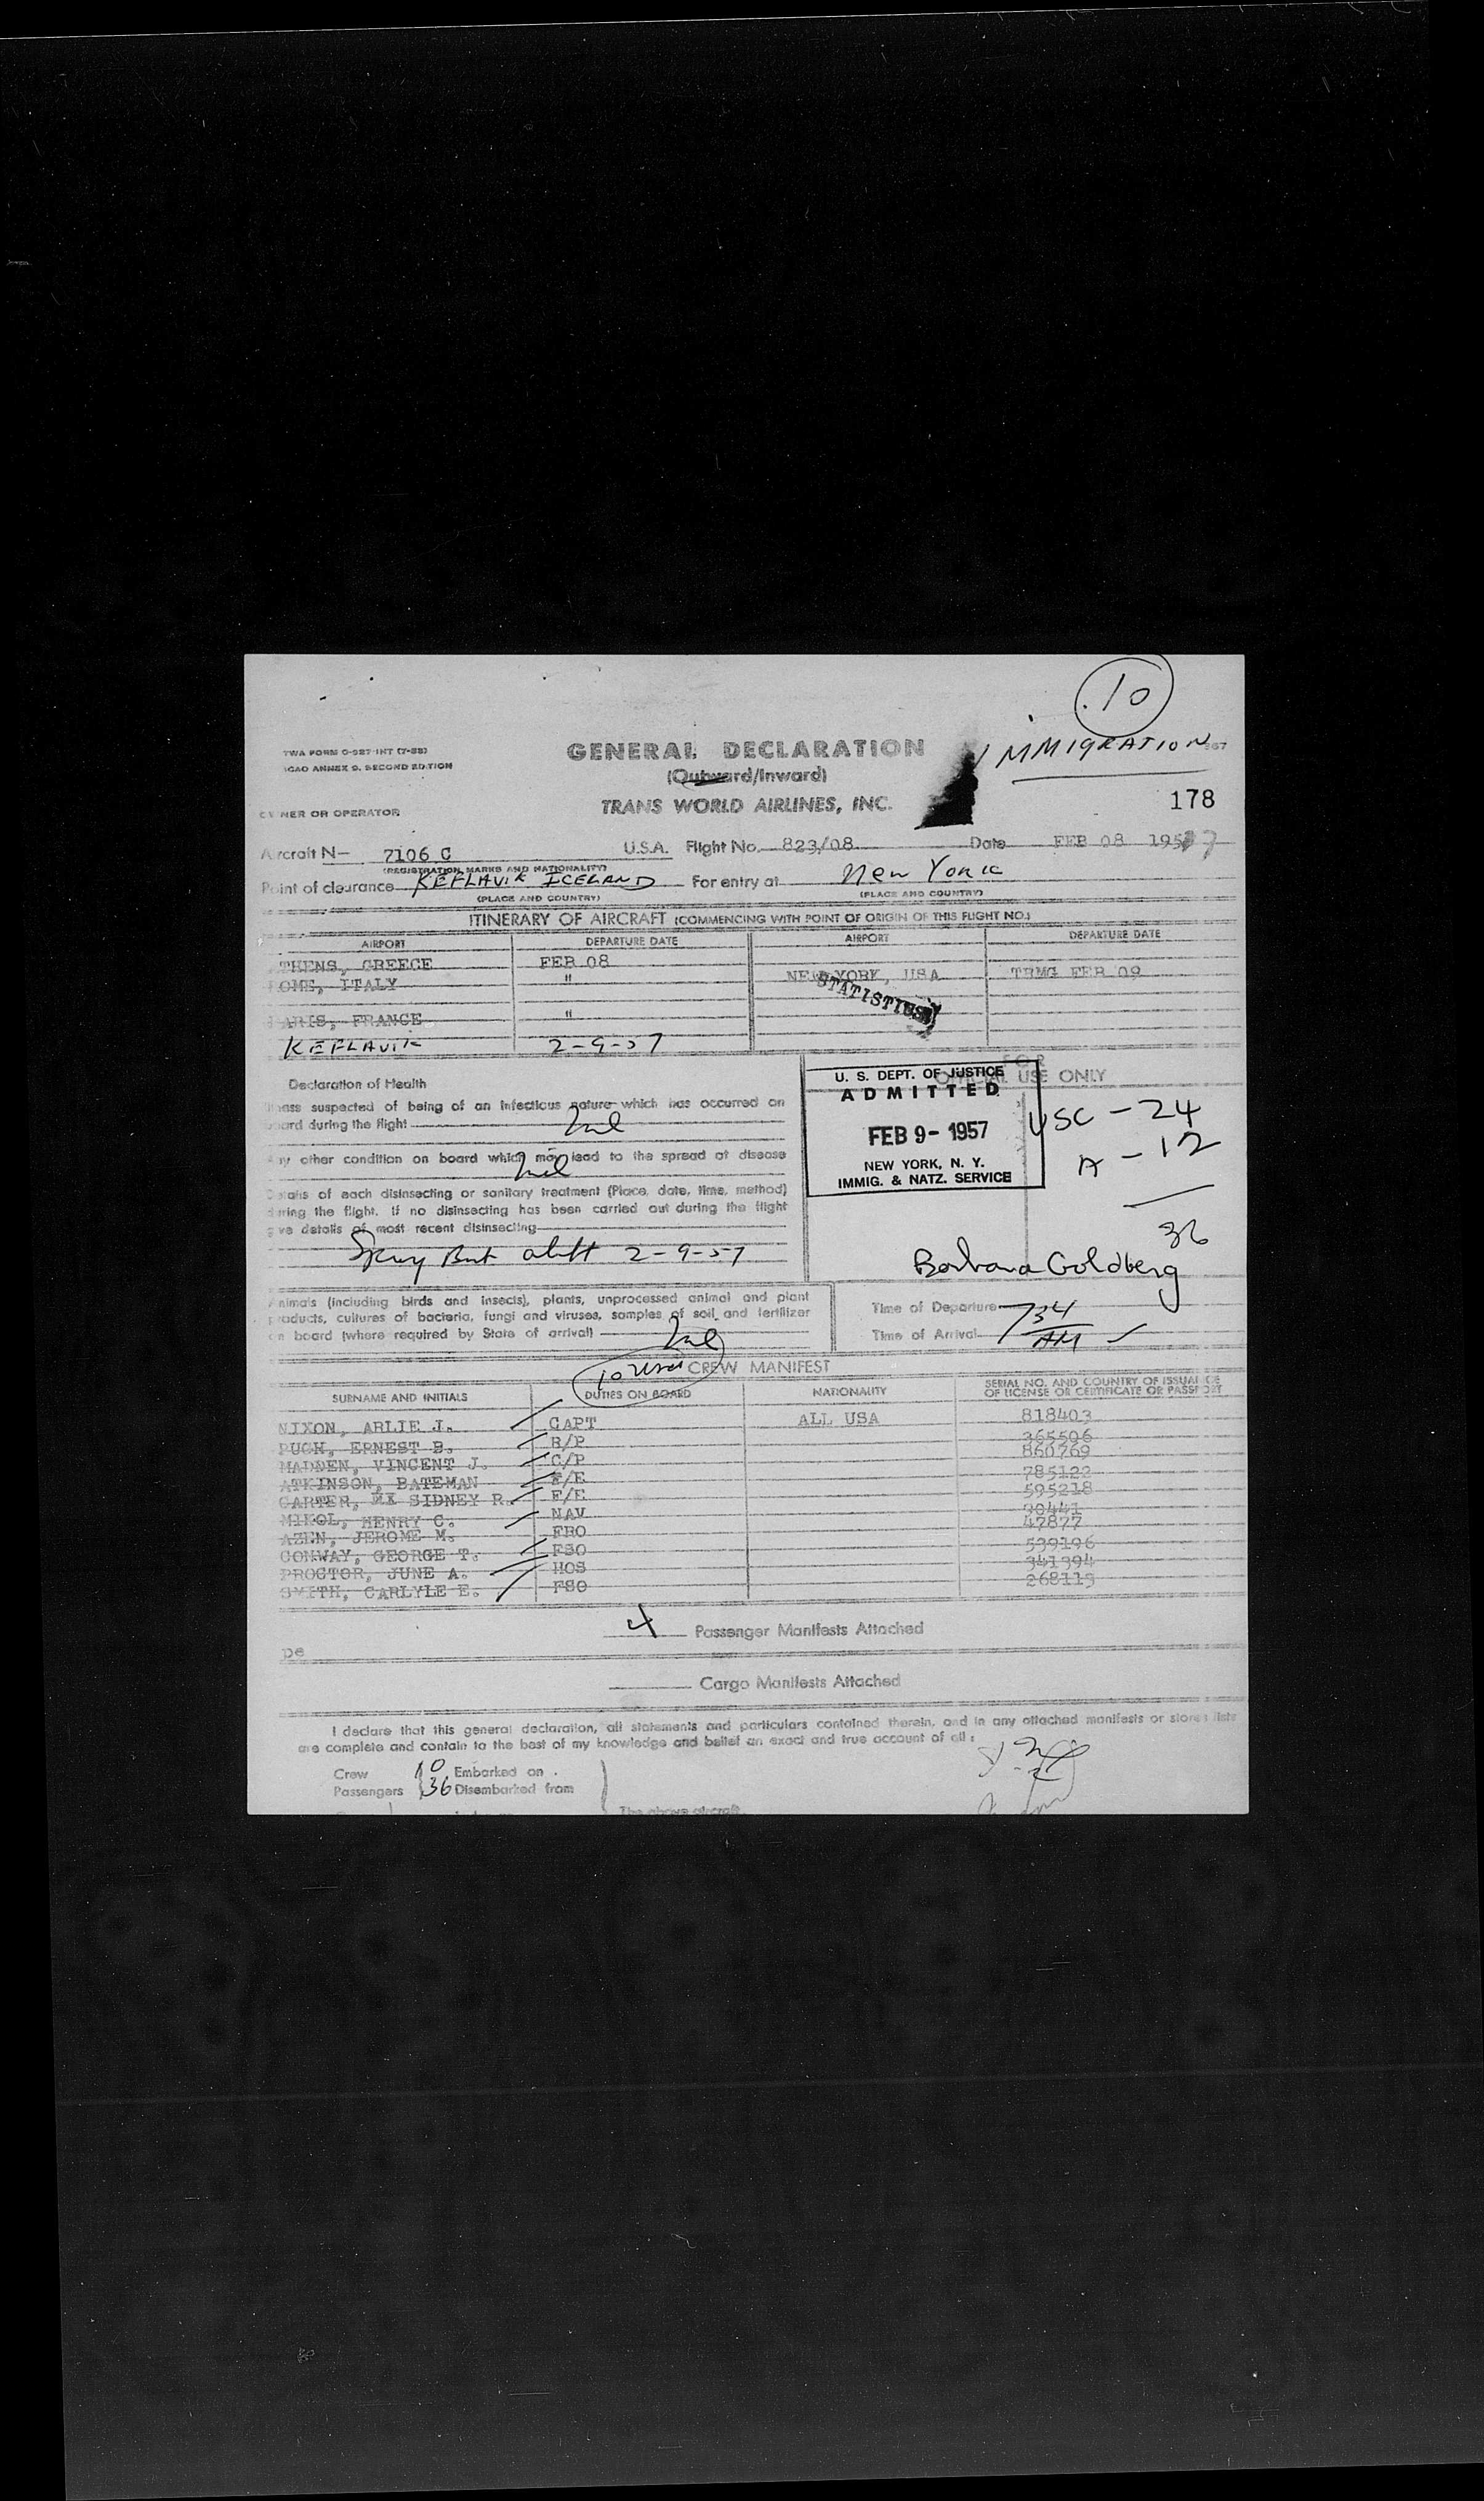 .10
IMMIGRATION
TWA FORM O-927-INT (7-55)
ICAO ANNEX 9. SECOND EDITION
GENERAL DECLARATION
(Outward/Inward)
OWNER OR OPERATOR
TRANS WORLD AIRLINES, INC.
178
Aircraft N- 7106 C U.S.A. Flight No. 823/08 Date FEB 08 1957
(REGISTRATION MARKS AND NATIONALITY)
Point of clearance KEFLAVIK ICELAND For entry at New York
(PLACE AND COUNTRY) (PLACE AND COUNTRY)
ITINERARY OF AIRCRAFT (COMMENCING WITH POINT OF ORIGIN OF THIS FLIGHT NO.)
AIRPORT DEPARTURE DATE AIRPORT DEPARTURE DATE
THENS, GREECE FEB 08
OME, ITALY " NEW YORK, USA TRMG FEB 09
STATISTICS
ARIS, FRANCE "
KEFLAVIK 2-9-57
Declaration of Health
FOR
OFFICIAL USE ONLY
U. S. DEPT. OF JUSTICE
ADMITTED
FEB 9- 1957
NEW YORK, N. Y.
IMMIG. & NATZ. SERVICE
USC - 24
A - 12
36
Barbara Goldberg
llness suspected of being of an infectious nature which has occurred on
board during the flight nil
Any other condition on board which may lead to the spread of disease
nil
Details of each disinsecting or sanitary treatment (Place, date, time, method)
during the flight. If no disinsecting has been carried out during the flight
give details of most recent disinsecting
2-9-57
Animals (including birds and insects), plants, unprocessed animal and plant
products, cultures of bacteria, fungi and viruses, samples of soil and fertilizer
on board (where required by State of arrival) nil
Time of Departure
Time of Arrival 734 AM
CREW MANIFEST
SURNAME AND INITIALS DUTIES ON BOARD NATIONALITY SERIAL NO. AND COUNTRY OF ISSUANCE OF LICENSE OR CERTIFICATE OR PASSPORT
NIXON, ARLIE J. CAPT ALL USA 818403
PUGH, ERNEST B. R/P 365506
MADDEN, VINCENT J. C/P 860769
ATKINSON, BATEMAN F/E 785122
CARTER, SIDNEY R. F/E 595218
MIKOL, HENRY C. NAV 30441
AZEN, JEROME M. FRO 47877
CONWAY, GEORGE T. FSO 539196
PROCTOR, JUNE A. HOS 341394
SMITH, CARLYLE E. FSO 268113
4 Passenger Manifests Attached
pe
Cargo Manifests Attached
I declare that this general declaration, all statements and particulars contained therein, and in any attached manifests or stores lists
are complete and contain to the best of my knowledge and belief an exact and true account of all:
Crew 10 Embarked on .
Passengers 36 Disembarked from
The above aircraft